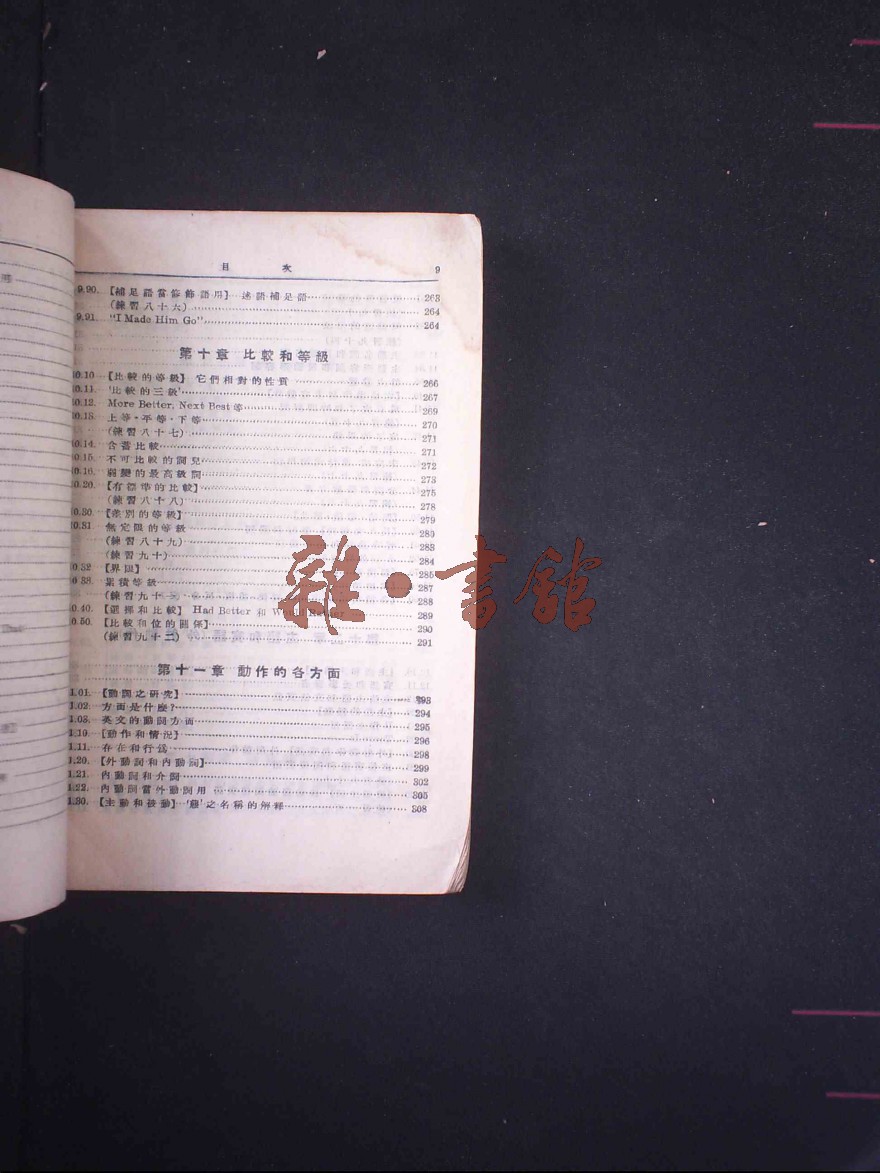 目 次 9
9.90. 【補足語當修飾語用】 述語補足語 263
(練習八十六) 264
9.91. "I Made Him Go" 264
第十章 比較和等級
10.10 【比較的等級】 它們相對的性質 266
10.11. '比較的三級' 267
10.12. More Better, Next Best等 269
10.13. 上等·平等·下等 270
(練習八十七) 271
10.14. 含蓄比較 271
10.15. 不可比較的詞兒 272
10.16. 弱變的最高級詞 273
10.20. 【有標準的比較】 275
(練習八十八) 278
10.30. 【差別的等級】 279
10.31. 無定限的等級 280
(練習八十九) 283
(練習九十) 284
10.32. 【界限】 285
10.33. 累積等級 287
(練習九十一) 288
10.40. 【選擇和比較】 Had Better 和 Would Rather 289
10.50. 【比較和位的關係】 290
(練習九十二) 291
第十一章 動作的各方面
1.01. 【動詞之研究】 293
1.02. 方面是什麼? 294
1.03. 英文的動詞方面 295
1.10. 【動作和情況】 296
1.11. 存在和行為 298
1.20. 【外動詞和內動詞】 299
1.21. 內動詞和介詞 302
1.22. 內動詞當外動詞用 305
1.30. 【主動和被動】 '態'之名稱的解釋 308
雜·書館